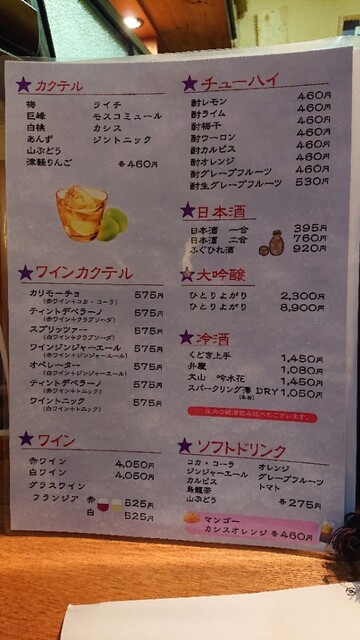 ★カクテル
梅 ライチ
巨峰 モスコミュール
白桃 カシス
あんず ジントニック
山ぶどう
津軽りんご 各460円
★ワインカクテル
カリモーチョ 575円
(赤ワイン+コカ・コーラ)
ティントデベラーノ 575円
(赤ワイン+クラブソーダ)
スプリッツァー 575円
(白ワイン+クラブソーダ)
ワインジンジャーエール 575円
(赤ワイン+ジンジャーエール)
オペレーター 575円
(白ワイン+ジンジャーエール)
ティントデベラーノ 575円
(赤ワイン+トニック)
ワイントニック 575円
(白ワイン+トニック)
★ワイン
赤ワイン 4,050円
白ワイン 4,050円
グラスワイン
フランジア 赤 525円
白 525円
★チューハイ
酎レモン 460円
酎ライム 460円
酎梅干 460円
酎ウーロン 460円
酎カルピス 460円
酎オレンジ 460円
酎グレープフルーツ 460円
酎生グレープフルーツ 530円
★日本酒
日本酒 一合 395円
日本酒 二合 760円
ふぐひれ酒 920円
★大吟醸
ひとりよがり 2,300円
ひとりよがり 8,900円
★冷酒
くどき上手 1,450円
弁慶 1,080円
大山 吟水花 1,450円
スパークリング澪 DRY 1,050円
★ソフトドリンク
コカ・コーラ オレンジ
ジンジャーエール グレープフルーツ
カルピス トマト
烏龍茶
山ぶどう 各275円
マンゴー
カシスオレンジ 各460円